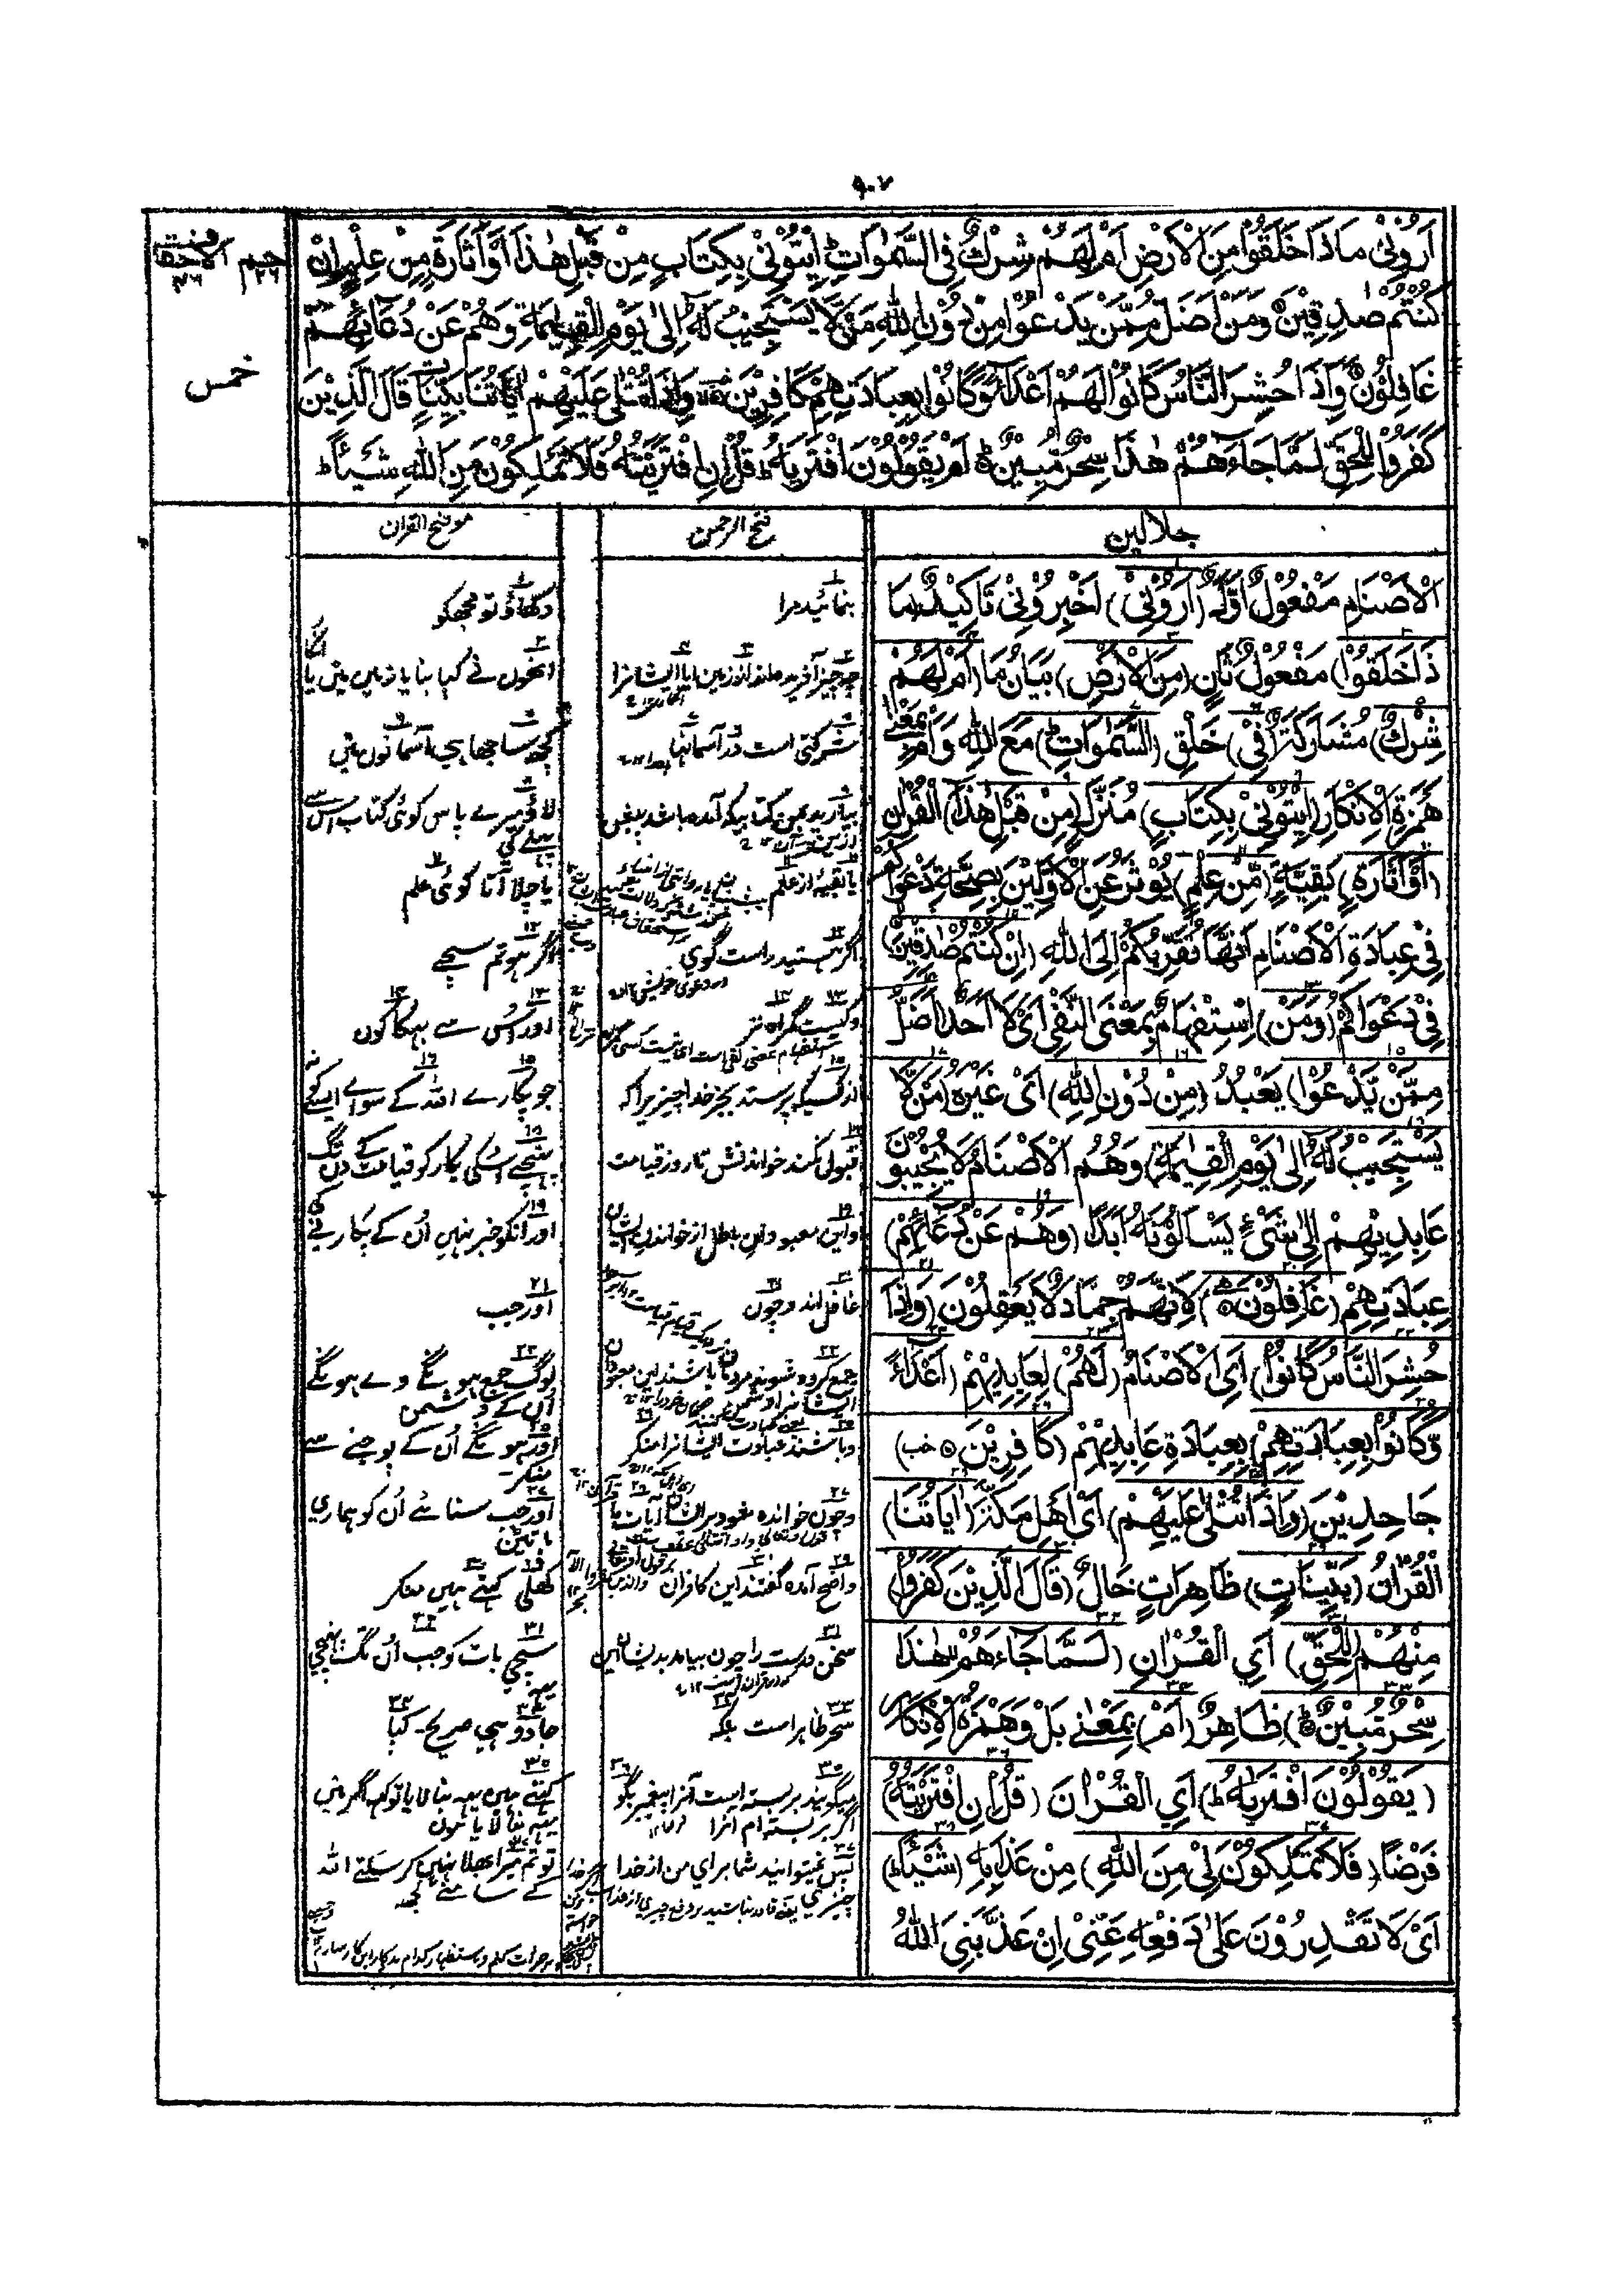 ٩٠٧
حٰم ٢٦ الاحقاف ٤٦
خمس
اَرُوْنِیْ مَاذَا خَلَقُوْا مِنَ الْاَرْضِ اَمْ لَهُمْ شِرْكٌ فِی السَّمٰوَاتِ ؕ اِیْتُوْنِیْ بِكِتَابٍ مِنْ قَبْلِ هٰذَا اَوْ اَثَارَةٍ مِنْ عِلْمٍ اِنْ
كُنْتُمْ صٰدِقِیْنَ وَمَنْ اَضَلُّ مِمَّنْ یَدْعُوْا مِنْ دُوْنِ اللّٰهِ مَنْ لَّا یَسْتَجِیْبُ لَهٗ اِلٰی یَوْمِ الْقِیٰمَةِ وَهُمْ عَنْ دُعَائِهِمْ
غَافِلُوْنَ وَاِذَا حُشِرَ النَّاسُ كَانُوْا لَهُمْ اَعْدَآءً وَّكَانُوْا بِعِبَادَتِهِمْ كَافِرِیْنَ وَاِذَا تُتْلٰی عَلَیْهِمْ اٰیَاتُنَا بَیِّنَاتٍ قَالَ الَّذِیْنَ
كَفَرُوْا لِلْحَقِّ لَمَّا جَاءَهُمْ هٰذَا سِحْرٌ مُّبِیْنٌ ؕ اَمْ یَقُوْلُوْنَ افْتَرٰىهُ ؕ قُلْ اِنِ افْتَرَیْتُهٗ فَلَا تَمْلِكُوْنَ لِیْ مِنَ اللّٰهِ شَیْئًا ؕ
جلالین
الْاَصْنَامِ مَفْعُوْلٌ اَوَّلُ (اَرُوْنِیْ) اَخْبِرُوْنِیْ تَاكِیْدٌ (مَا
ذَا خَلَقُوْا) مَفْعُوْلٌ ثَانٍ (مِنَ الْاَرْضِ) بَیَانُ مَا (اَمْ لَهُمْ
شِرْكٌ) مُشَارَكَةٌ (فِیْ) خَلْقِ (السَّمٰوَاتِ ؕ) مَعَ اللّٰهِ وَاَمْ بِمَعْنٰی
هَمْزَةِ الْاِنْكَارِ (اِیْتُوْنِیْ بِكِتَابٍ) مُنَزَّلٍ (مِنْ قَبْلِ هٰذَا) الْقُرْاٰنِ
(اَوْ اَثَارَةٍ) بَقِیَّةٍ (مِّنْ عِلْمٍ) یُوْثَرُ عَنِ الْاَوَّلِیْنَ بِصِحَّةِ دَعْوَاكُمْ
فِیْ عِبَادَةِ الْاَصْنَامِ اَنَّهَا تُقَرِّبُكُمْ اِلَی اللّٰهِ (اِنْ كُنْتُمْ صٰدِقِیْنَ)
فِیْ دَعْوَاكُمْ (وَمَنْ) اِسْتِفْهَامٌ بِمَعْنَی النَّفْیِ اَیْ لَا اَحَدَ (اَضَلُّ
مِمَّنْ یَّدْعُوْا) یَعْبُدُ (مِنْ دُوْنِ اللّٰهِ) اَیْ غَیْرِهٖ (مَنْ لَّا
یَسْتَجِیْبُ لَهٗ اِلٰی یَوْمِ الْقِیٰمَةِ) وَهُمُ الْاَصْنَامُ لَا یُجِیْبُوْنَ
عَابِدِیْهِمْ اِلٰی شَیْءٍ یَسْاَلُوْنَهٗ اَبَدًا (وَهُمْ عَنْ دُعَائِهِمْ)
عِبَادَتِهِمْ (غَافِلُوْنَ) لِاَنَّهُمْ جَمَادٌ لَا یَعْقِلُوْنَ (وَاِذَا
حُشِرَ النَّاسُ كَانُوْا) اَیِ الْاَصْنَامُ (لَهُمْ) لِعَابِدِیْهِمْ (اَعْدَآءً
وَّكَانُوْا بِعِبَادَتِهِمْ) بِعِبَادَةِ عَابِدِیْهِمْ (كَافِرِیْنَ)
جَاحِدِیْنَ (وَاِذَا تُتْلٰی عَلَیْهِمْ) اَیْ اَهْلِ مَكَّةَ (اٰیَاتُنَا)
الْقُرْاٰنُ (بَیِّنَاتٍ) ظَاهِرَاتٍ حَالٌ (قَالَ الَّذِیْنَ كَفَرُوْا)
مِنْهُمْ (لِلْحَقِّ) اَیِ الْقُرْاٰنِ (لَمَّا جَاءَهُمْ هٰذَا
سِحْرٌ مُّبِیْنٌ) ظَاهِرٌ (اَمْ) بِمَعْنٰی بَلْ وَهَمْزَةِ الْاِنْكَارِ
(یَقُوْلُوْنَ افْتَرٰىهُ ؕ) اَیِ الْقُرْاٰنَ (قُلْ اِنِ افْتَرَیْتُهٗ)
فَرْضًا (فَلَا تَمْلِكُوْنَ لِیْ مِنَ اللّٰهِ) مِنْ عَذَابِهٖ (شَیْئًا ؕ)
اَیْ لَا تَقْدِرُوْنَ عَلٰی دَفْعِهٖ عَنِّیْ اِنْ عَذَّبَنِیَ اللّٰهُ
فتح الرحمن
بنمائید مرا
چه چیز آفریده اند از زمین آیا ایشانرا
شرکتی است در آسمانها
بیارید بمن کتابیکه آمده باشد پیش
یا بقیهٔ از علم
اگر هستید راست گوی
وکیست گمراه تر
از کسیکه پرستد بجز خدا چیزیرا که
قبول نکند خواندنش تا روز قیامت
واین معبودان باطل از خواندن ایشان
غافل اند وچون
جمع کرده شوند مردمان باشند این معبودان
وباشند عبادت ایشانرا منکر
وچون خوانده میشود بر ایشان آیات ما
واضح آمده گفتند این کافران
سخن درست را چون بیامد بدیشان این
سحر ظاهر است بلکه
میگویند بربسته است آنرا پیغمبر بگو
اگر بربسته ام آنرا
پس نمیتوانید شما برای من از خدا
چیزی
موضح القرآن
دکھاؤ تو مجھکو
انھوں نے کیا بنایا زمین میں یا انکا
کچھ ساجھا ہی آسمانوں میں
لاؤ میرے پاس کوئی کتاب اس سے
پہلے کی
یا چلا آتا کوئی علم
اگر ہو تم سچے
اور اُس سے بہکا کون
جو پکارے اللہ کے سوائے ایسے کو
اور انکو خبر نہیں اُن کے پکارنے کی
اور جب
لوگ جمع ہونگے وے ہونگے
اُن کے دشمن
اور ہونگے اُن کے پوجنے سے
منکر
اور جب سنائے اُن کو ہماری
باتیں
کھلی کہتے ہیں منکر
سچی بات کو جب اُن تک پہنچی
یہہ
جادو ہی صریح۔ کیا
کہتے ہیں یہہ بنا لایا تو کہہ اگر میں
یہہ بنا لایا ہوں
تو تم میرا بھلا نہیں کر سکتے اللہ
کے سامنے کچھ